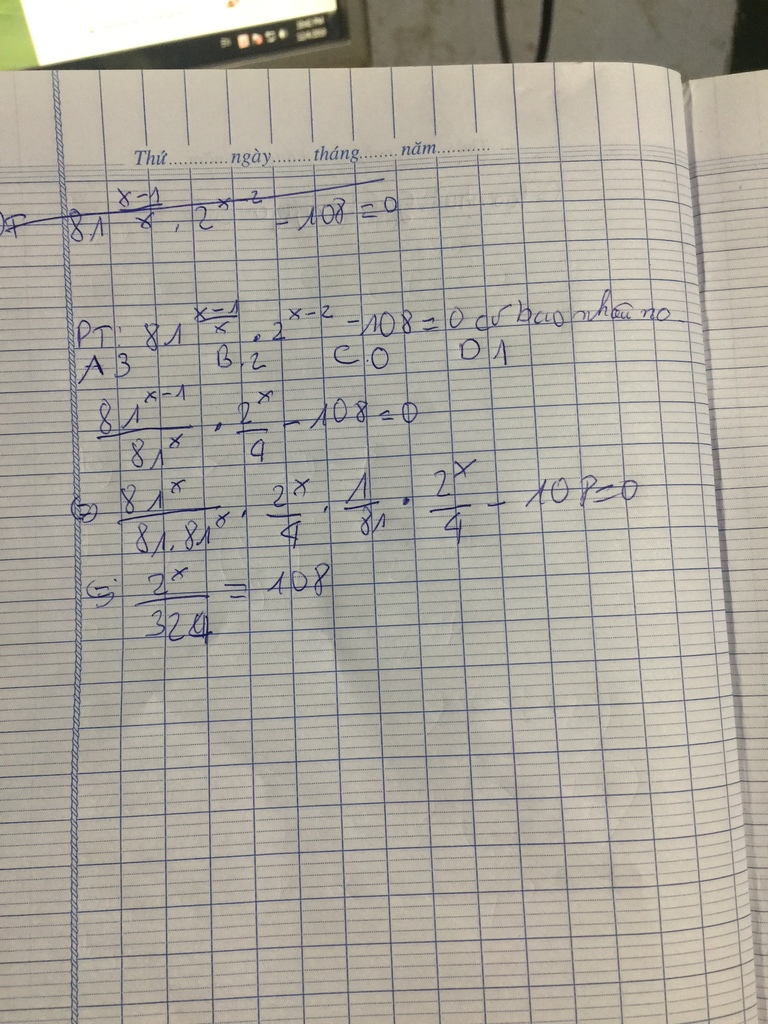 Thứ............ngày........tháng........năm...........
81^{\frac{x-1}{x}} . 2^{x-2} - 108 = 0
PT: 81^{\frac{x-1}{x}} . 2^{x-2} - 108 = 0 có bao nhiêu no
A 3 B. 2 C. 0 D 1
\frac{81^{x-1}}{81^x} . \frac{2^x}{4} - 108 = 0
\frac{81^x}{81.81^x} . \frac{2^x}{4} . \frac{1}{81} . \frac{2^x}{4} - 108 = 0
\frac{2^x}{324} = 108